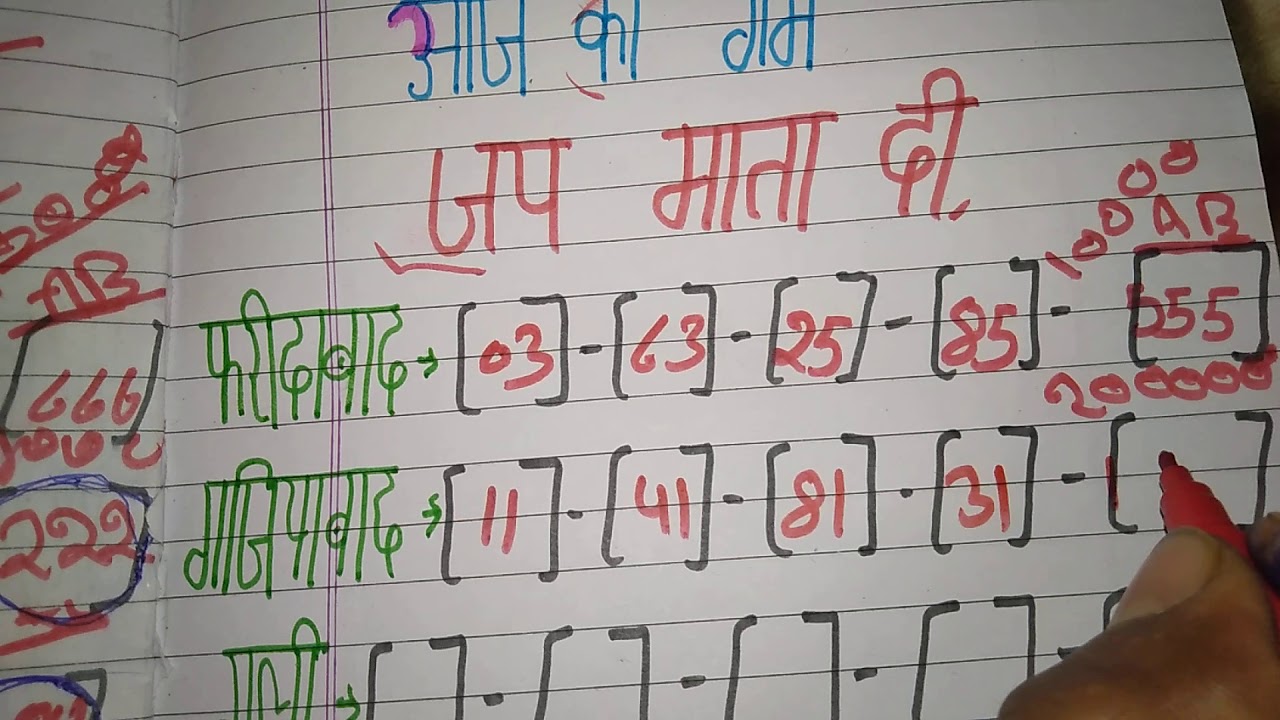 आज का गेम
जय माता दी.
AB
फरीदाबाद → [03] - [63] - [25] - [85] - [555]
200000
गाजियाबाद → [11] - [41] - [81] - [31] - [
गली →
AB
[666]
222